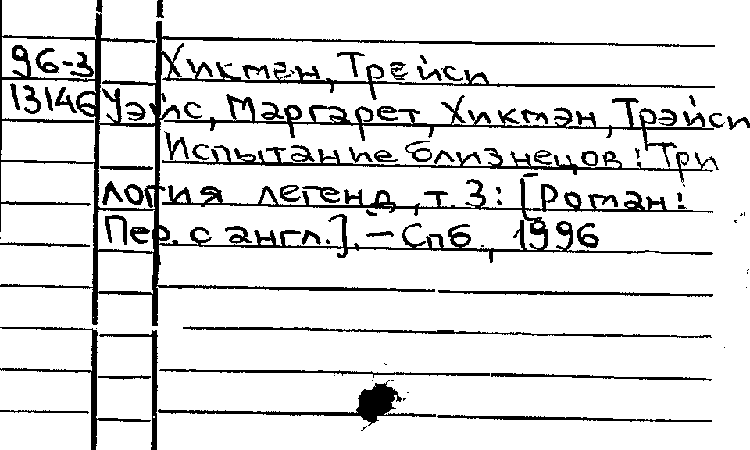 96-3 Хикмен, Трейси
13146 Уэйс, Маргарет, Хикмэн, Трэйси
Испытание близнецов: Три
логия легенд, т. 3: [Роман:
Пер. с англ.]. – Спб., 1996